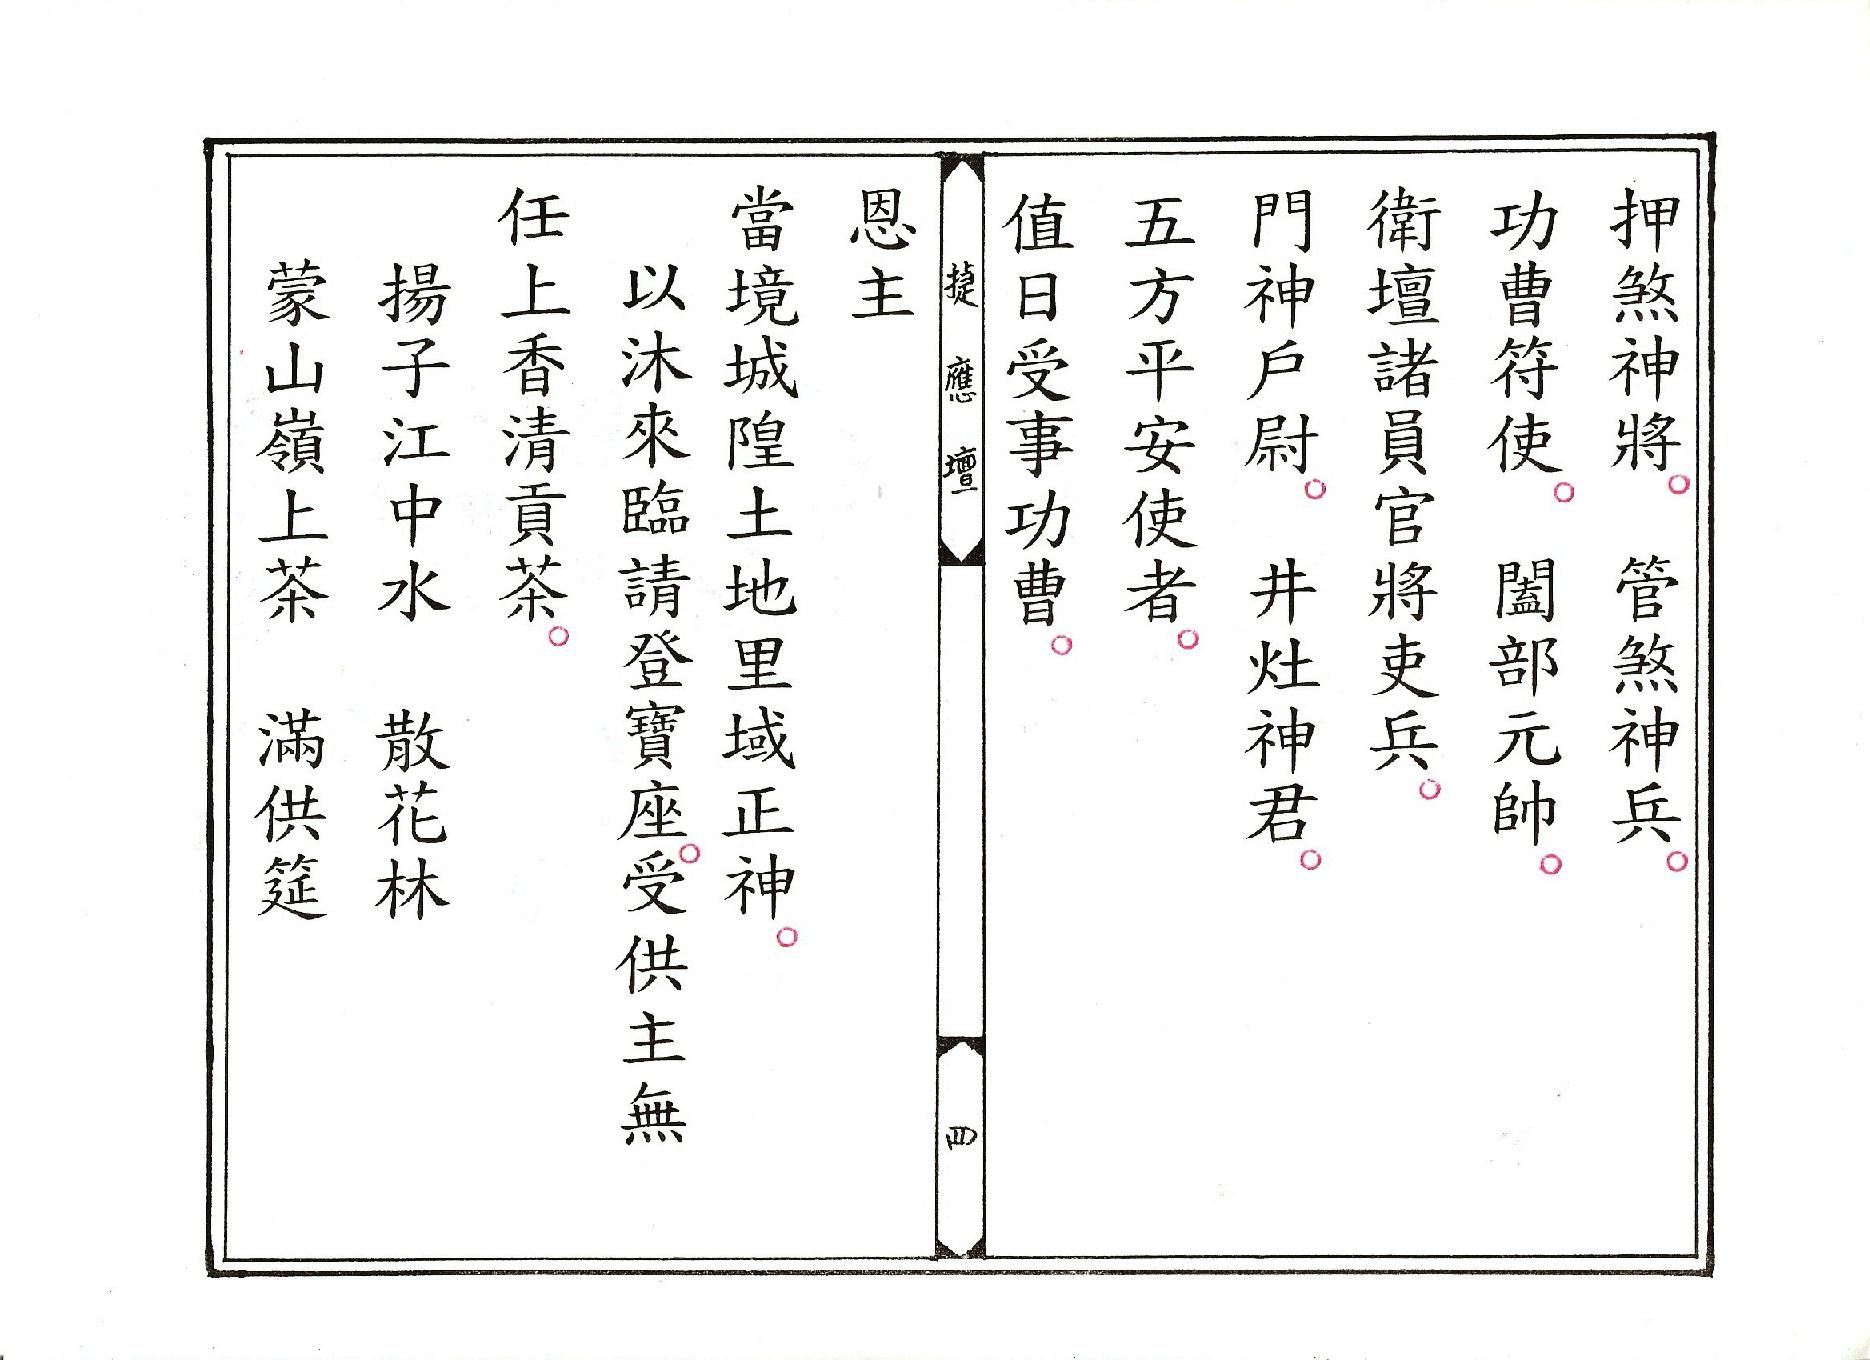 押煞神將。 管煞神兵。
功曹符使。 闔部元帥。
衛壇諸員官將吏兵。
門神戶尉。 井灶神君。
五方平安使者。
值日受事功曹。
捷應壇
四
恩主
當境城隍土地里域正神。
以沐來臨請登寶座。受供主無
任上香清貢茶。
揚子江中水 散花林
蒙山嶺上茶 滿供筵